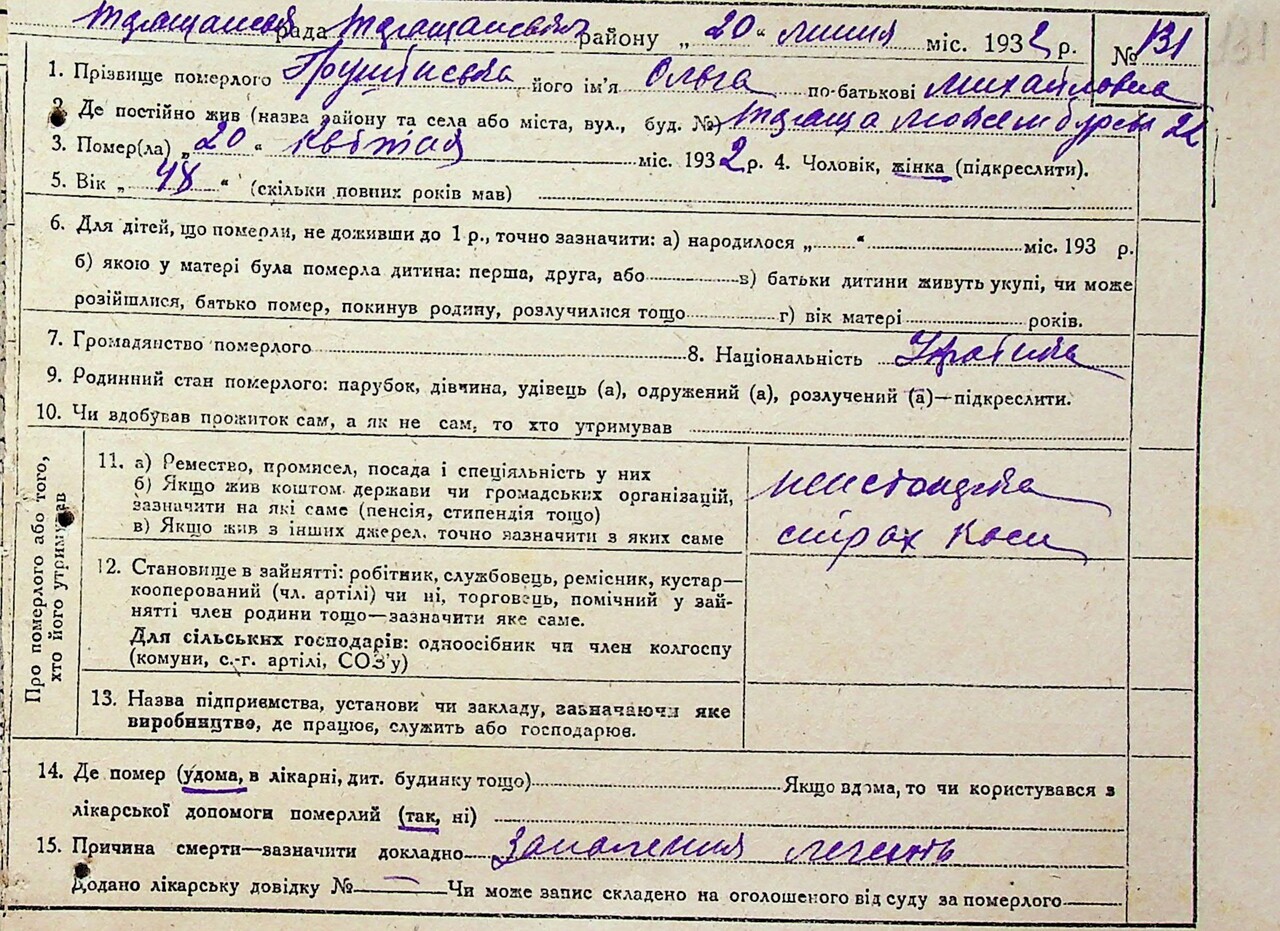 Таращанська рада Таращанського району „20“ липня міс. 1932 р. № 131
1. Прізвище померлого його ім'я Ольга по-батькові Михайловна
2. Де постійно жив (назва району та села або міста, вул., буд. №) Тараща 22
3. Помер(ла) „20“ квітня міс. 1932 р. 4. Чоловік, жінка (підкреслити).
5. Вік „48“ (скільки повних років мав)
6. Для дітей, що померли, не доживши до 1 р., точно зазначити: а) народилося „ “ міс. 193 р.
б) якою у матері була померла дитина: перша, друга, або в) батьки дитини живуть укупі, чи може
розійшлися, батько помер, покинув родину, розлучилися тощо г) вік матері років.
7. Громадянство померлого 8. Національність
9. Родинний стан померлого: парубок, дівчина, удівець (а), одружений (а), розлучений (а)—підкреслити.
10. Чи вдобував прожиток сам, а як не сам, то хто утримував
Про померлого або того,
хто його утримував
11. а) Ремество, промисел, посада і спеціяльність у них
б) Якщо жив коштом держави чи громадських організацій,
зазначити на які саме (пенсія, стипендія тощо)
в) Якщо жив з інших джерел, точно зазначити з яких саме
страх каси
12. Становище в зайнятті: робітник, службовець, ремісник, кустар—
кооперований (чл. артілі) чи ні, торговець, помічний у зай-
нятті член родини тощо—зазначити яке саме.
Для сільських господарів: одноосібник чи член колгоспу
(комуни, с.-г. артілі, СОЗ'у)
13. Назва підприємства, установи чи закладу, зазначаючи яке
виробництво, де працює, служить або господарює.
14. Де помер (удома, в лікарні, дит. будинку тощо) Якщо вдома, то чи користувався з
лікарської допомоги померлий (так, ні)
15. Причина смерти—зазначити докладно Запалення легень
Додано лікарську довідку №— Чи може запис складено на оголошеного від суду за померлого